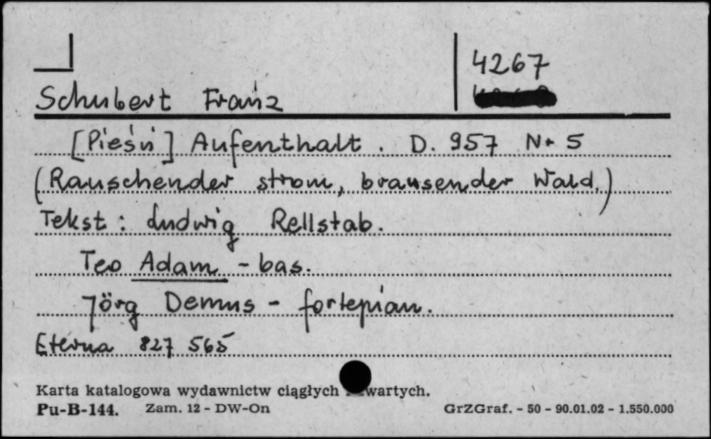 4267
Schubert Franz
[Pieśń] Aufenthalt. D. 957 Nr 5
(Rauschender strom, brausender Wald.)
Tekst: Ludwig Rellstab.
Teo Adam - bas.
Jörg Demus - fortepian.
Eterna 827 565
Karta katalogowa wydawnictw ciągłych i zwartych.
Pu-B-144. Zam. 12 - DW-On GrZGraf. - 50 - 90.01.02 - 1.550.000